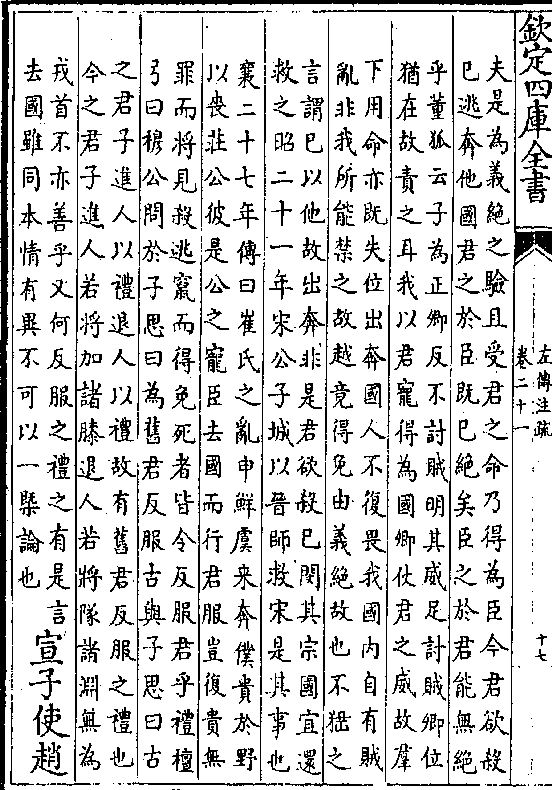 欽定四庫全書
左傳注疏
卷二十一
十七
夫是為義絶之驗且受君之命乃得為臣今君欲殺
已逃奔他國君之於臣既已絶矣臣之於君能無絶
乎董狐云子為正卿反不討賊明其威足討賊卿位
猶在故責之耳我以君寵得為國卿仗君之威故羣
下用命亦既失位出奔國人不復畏我國内自有賊
亂非我所能禁之故越竟得免由義絶故也不猛之
言謂已以他故出奔非是君欲殺已閔其宗國宜還
救之昭二十一年宋公子城以晉師救宋是其事也
襄二十七年傳曰崔氏之亂申鮮虞來奔僕賃於野
以喪莊公彼是公之寵臣去國而行君服豈復責無
罪而將見殺逃竄而得免死者皆令反服君乎禮檀
弓曰穆公問於子思曰為舊君反服古與子思曰古
之君子進人以禮退人以禮故有舊君反服之禮也
今之君子進人若將加諸膝退人若將隊諸淵無為
戎首不亦善乎又何反服之禮之有是言
去國雖同本情有異不可以一槩論也
宣子使趙